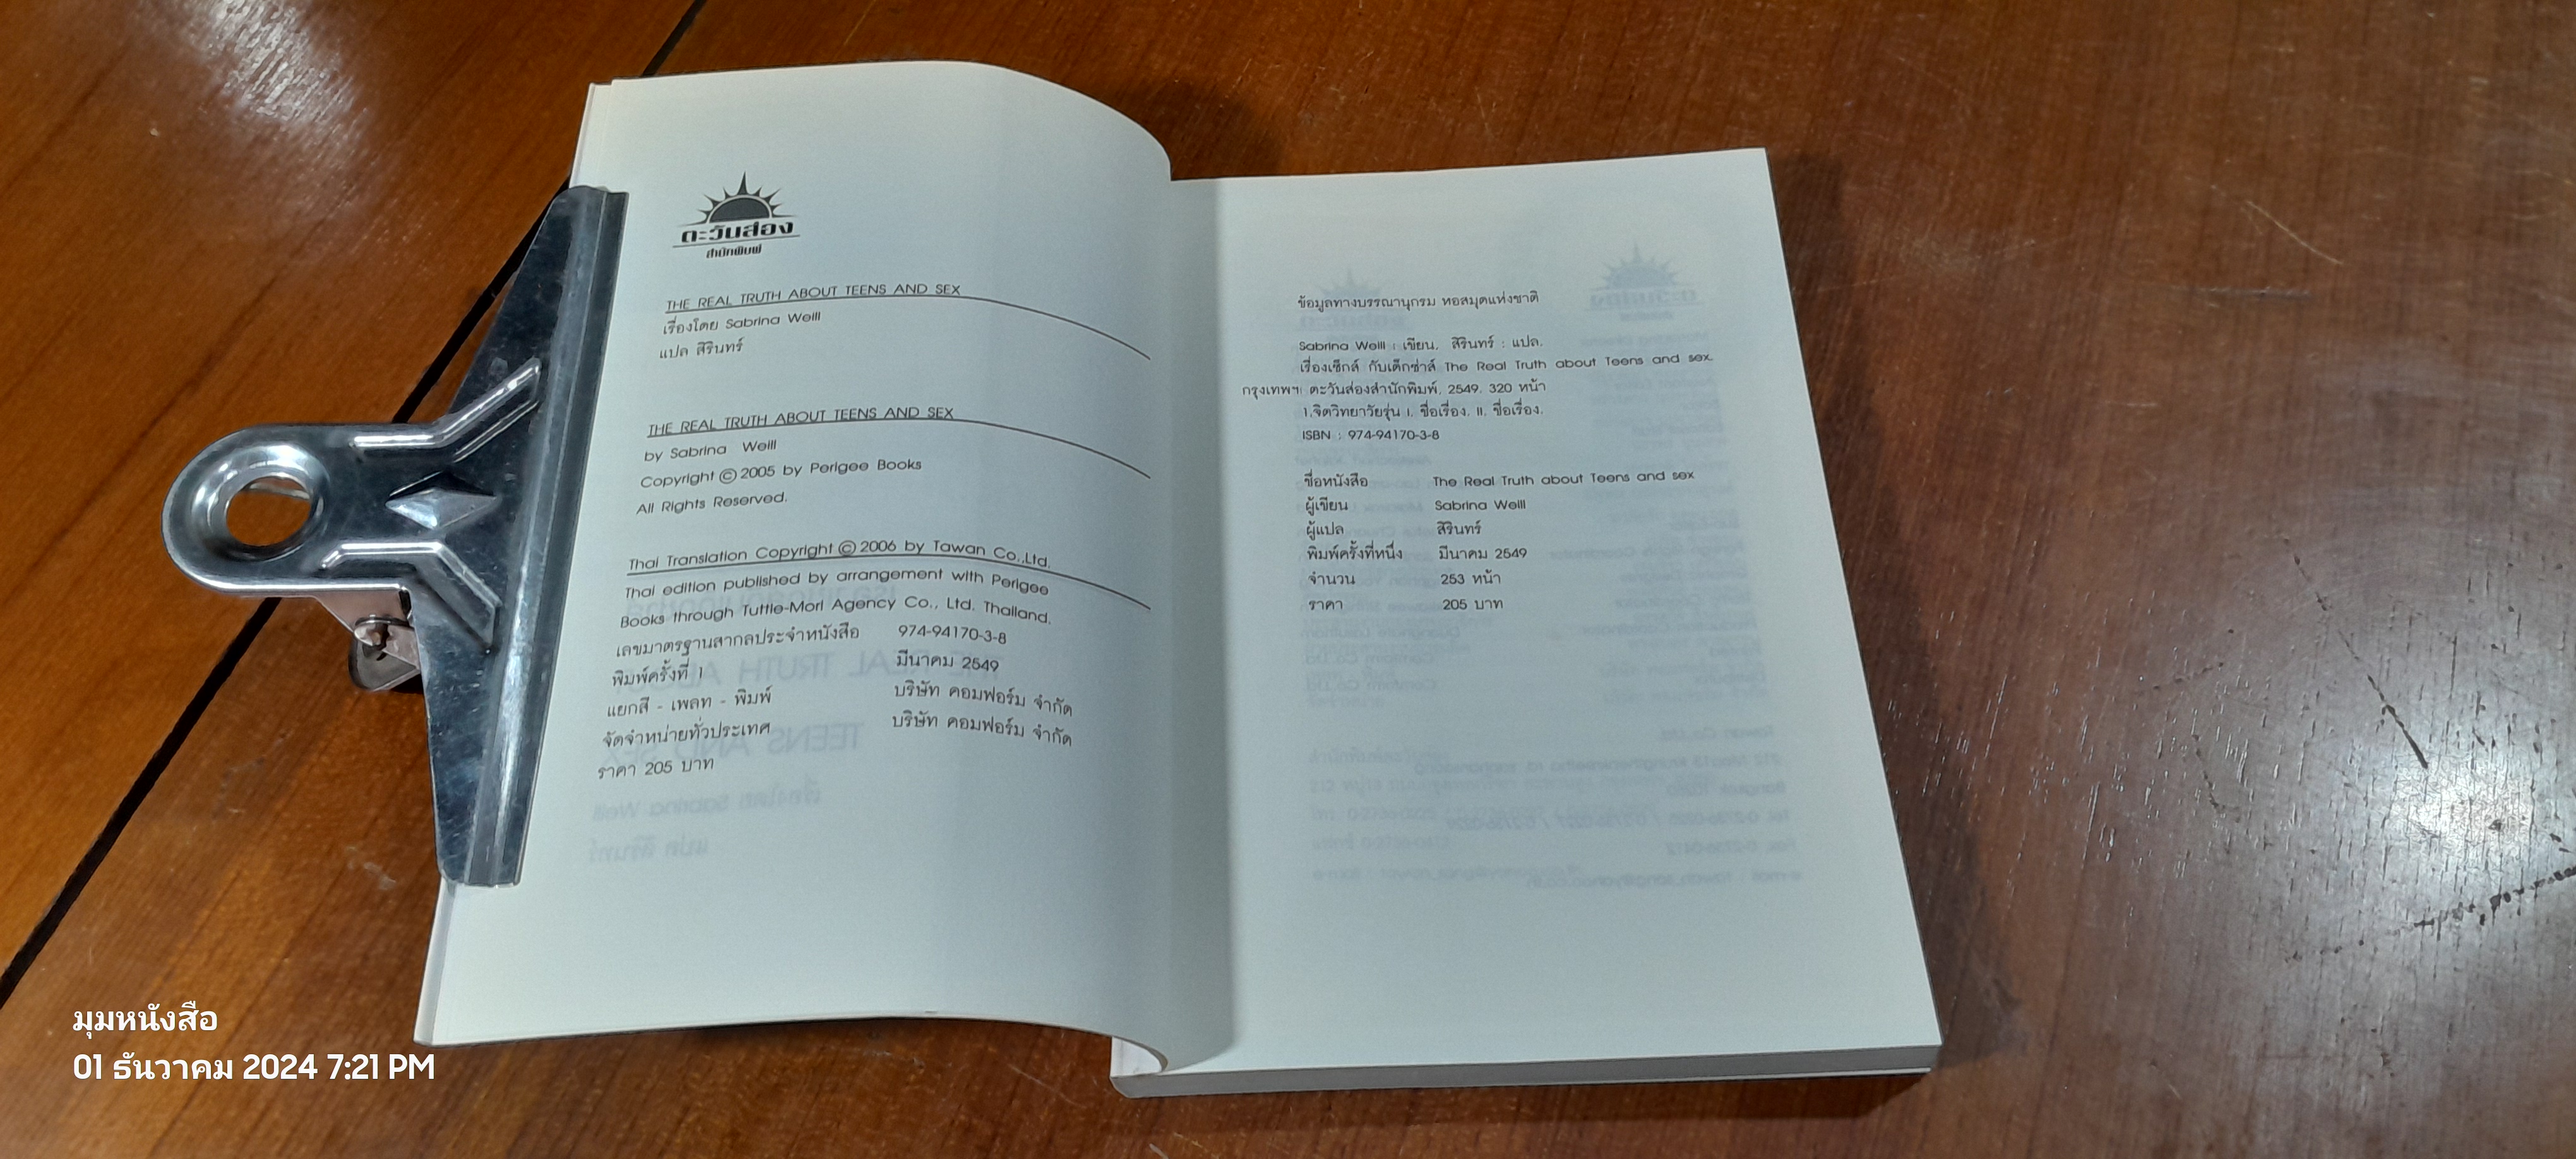 ตะวันส่อง
สำนักพิมพ์
THE REAL TRUTH ABOUT TEENS AND SEX
เรื่องโดย Sabrina Weill
แปล สิรินทร์
THE REAL TRUTH ABOUT TEENS AND SEX
by Sabrina Weill
Copyright © 2005 by Perigee Books
All Rights Reserved.
Thai Translation Copyright © 2006 by Tawan Co.,Ltd.
Thai edition published by arrangement with Perigee
Books through Tuttle-Mori Agency Co., Ltd. Thailand.
เลขมาตรฐานสากลประจำหนังสือ 974-94170-3-8
พิมพ์ครั้งที่ 1 มีนาคม 2549
แยกสี - เพลท - พิมพ์ บริษัท คอมฟอร์ม จำกัด
จัดจำหน่ายทั่วประเทศ บริษัท คอมฟอร์ม จำกัด
ราคา 205 บาท
ข้อมูลทางบรรณานุกรม หอสมุดแห่งชาติ
Sabrina Weill : เขียน, สิรินทร์ : แปล.
เรื่องเซ็กส์ กับเด็กซ่าส์ The Real Truth about Teens and sex.
กรุงเทพฯ: ตะวันส่องสำนักพิมพ์, 2549. 320 หน้า
1.จิตวิทยาวัยรุ่น I. ชื่อเรื่อง. II. ชื่อเรื่อง.
ISBN : 974-94170-3-8
ชื่อหนังสือ The Real Truth about Teens and sex
ผู้เขียน Sabrina Weill
ผู้แปล สิรินทร์
พิมพ์ครั้งที่หนึ่ง มีนาคม 2549
จำนวน 253 หน้า
ราคา 205 บาท
มุมหนังสือ
01 ธันวาคม 2024 7:21 PM